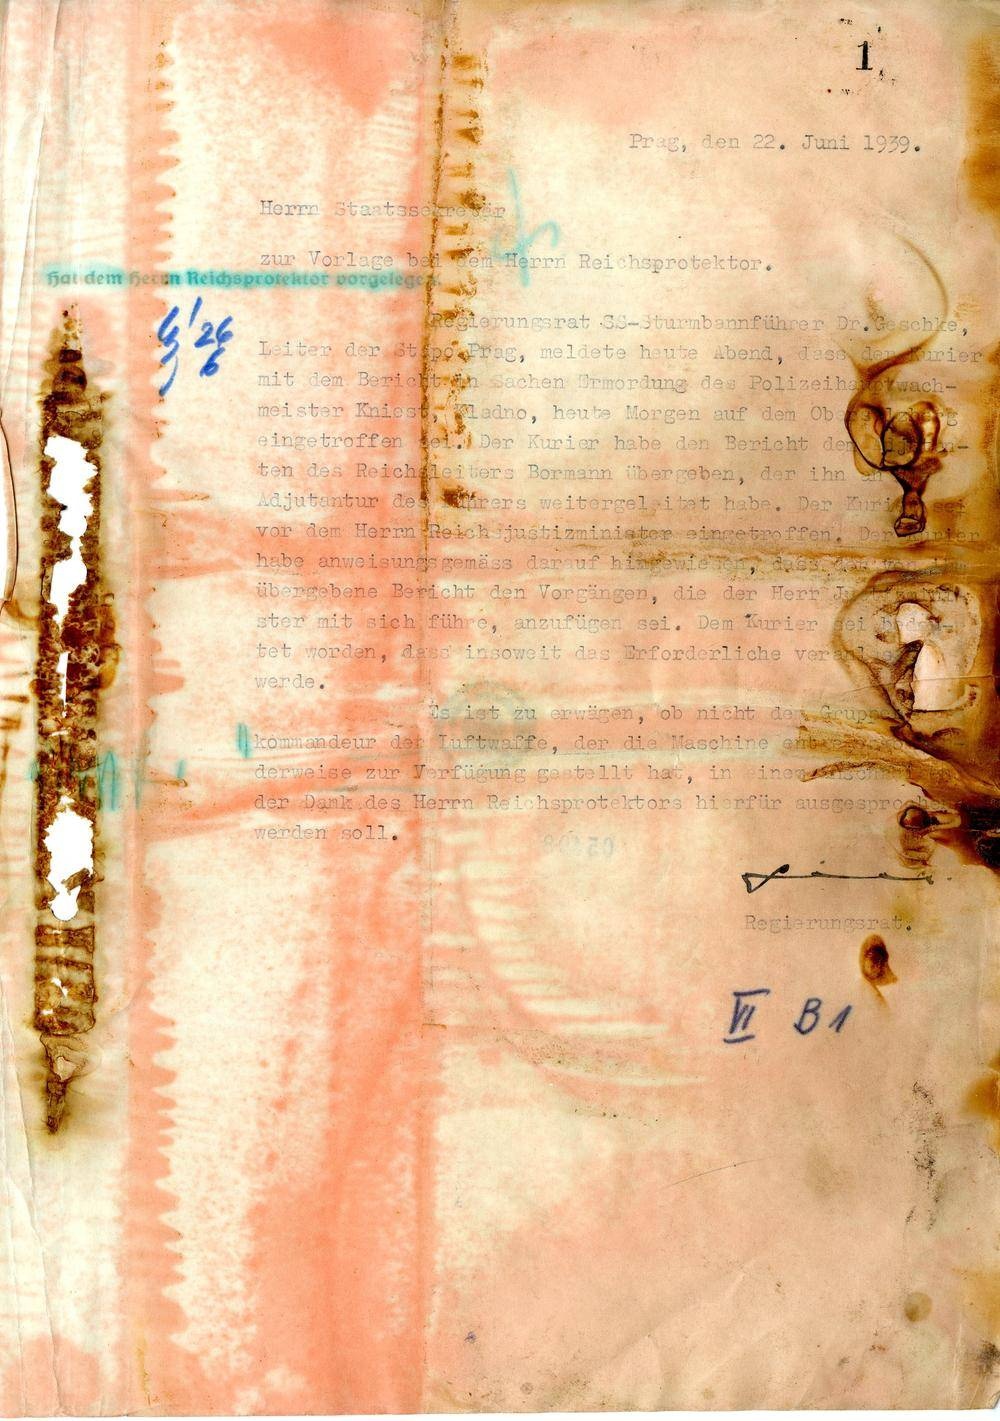 1
Prag, den 22. Juni 1939.
Herrn Staatssekretär
zur Vorlage bei dem Herrn Reichsprotektor.
Hat dem Herrn Reichsprotektor vorgelegen.
26
6
Regierungsrat SS-Sturmbannführer Dr.Geschke,
Leiter der Stapo Prag, meldete heute Abend, dass der Kurier
mit dem Bericht in Sachen Ermordung des Polizeihauptwach-
meister Kniest, Kladno, heute Morgen auf dem Obersalzberg
eingetroffen sei. Der Kurier habe den Bericht dem Adjutan-
ten des Reichsleiters Bormann übergeben, der ihn an
Adjutantur des Führers weitergeleitet habe. Der Kurier sei
vor dem Herrn Reichsjustizminister eingetroffen. Der Kurier
habe anweisungsgemäss darauf hingewiesen, dass der von ihm
übergebene Bericht den Vorgängen, die der Herr Justizmini-
ster mit sich führe, anzufügen sei. Dem Kurier sei bedeu-
tet worden, dass insoweit das Erforderliche veranlasst
werde.
Es ist zu erwägen, ob nicht dem Gruppen-
kommandeur der Luftwaffe, der die Maschine entgegenkommen-
derweise zur Verfügung gestellt hat, in einem Anschreiben
der Dank des Herrn Reichsprotektors hierfür ausgesprochen
werden soll.
Regierungsrat.
VI B1